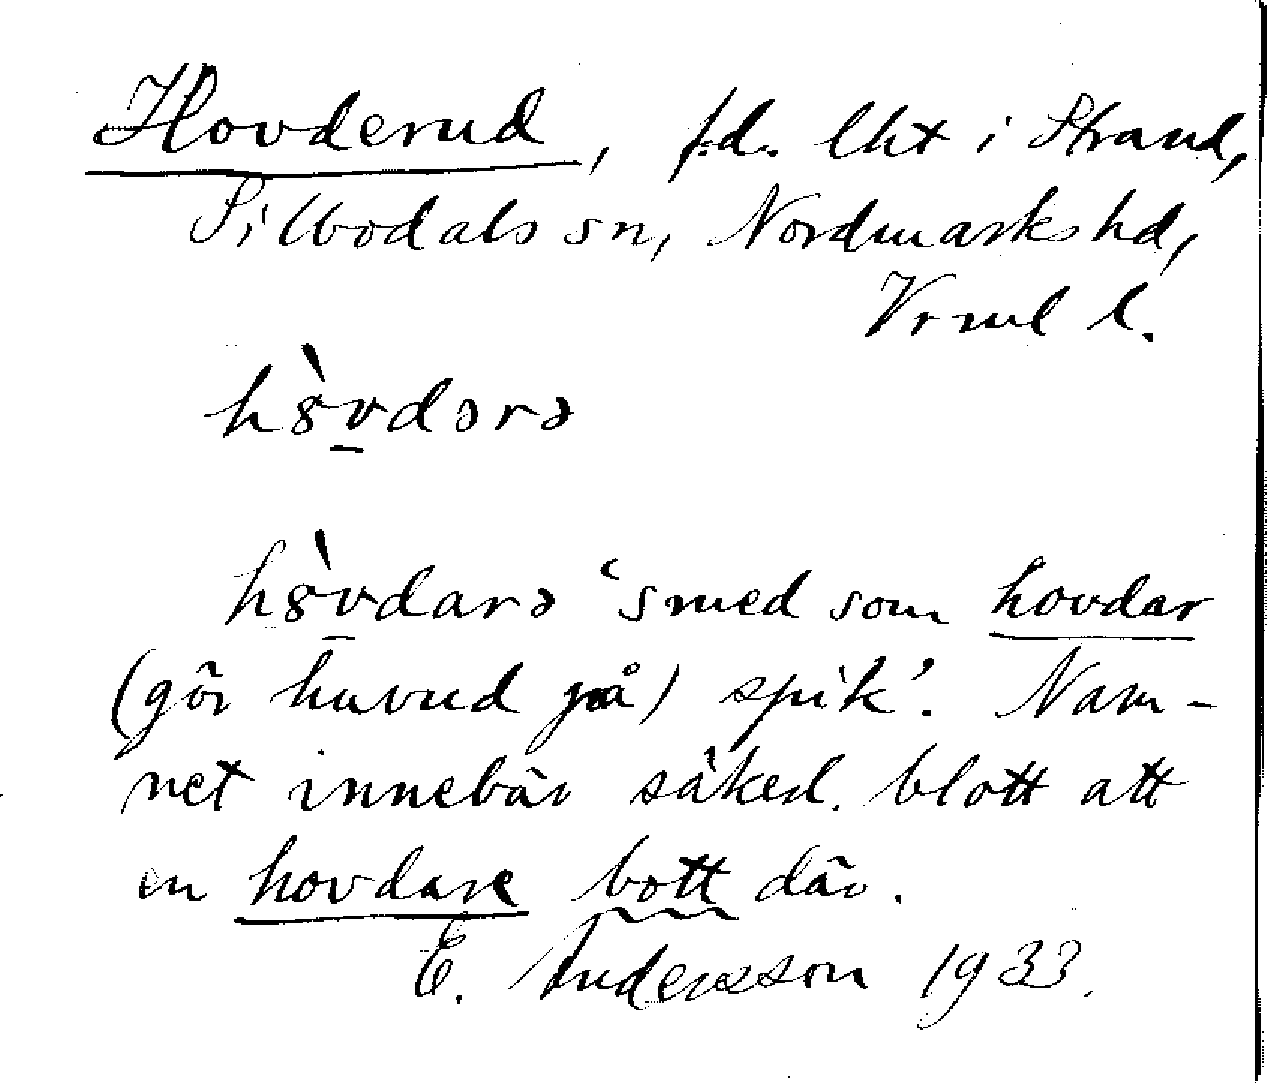 Hovderud, f.d. lht i Strand,
Silbodals sn, Nordmarks hd,
Vrml l.
h8̀v̠dərə
h8̀v̠darə 'smed som hovdar
(gör huvud på) spik'. Nam-
net innebär säked. blott att
en hovdare bott där.
E. Andersson 1933.